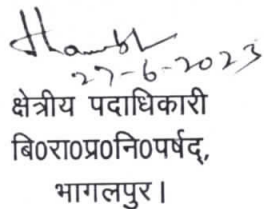 27-6-2023
क्षेत्रीय पदाधिकारी
बि०रा०प्र०नि०पर्षद्,
भागलपुर।